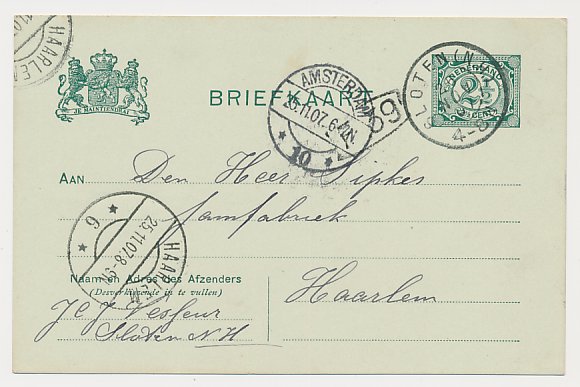 HAARLEM
BRIEFKAART
JE MAINTIENDRAI
AMSTERDAM
25.11.07. 6-7N.
10
69
SLOTEN (N.H.)
NEDERLAND
2½
CENT
4-8N
AAN Den Heer Sipkes
Jamfabriek
6
25.11.07. 8-9N
HAARLEM
Naam en Adres des Afzenders
(Desverkiezende in te vullen)
Haarlem
Sloten N.H